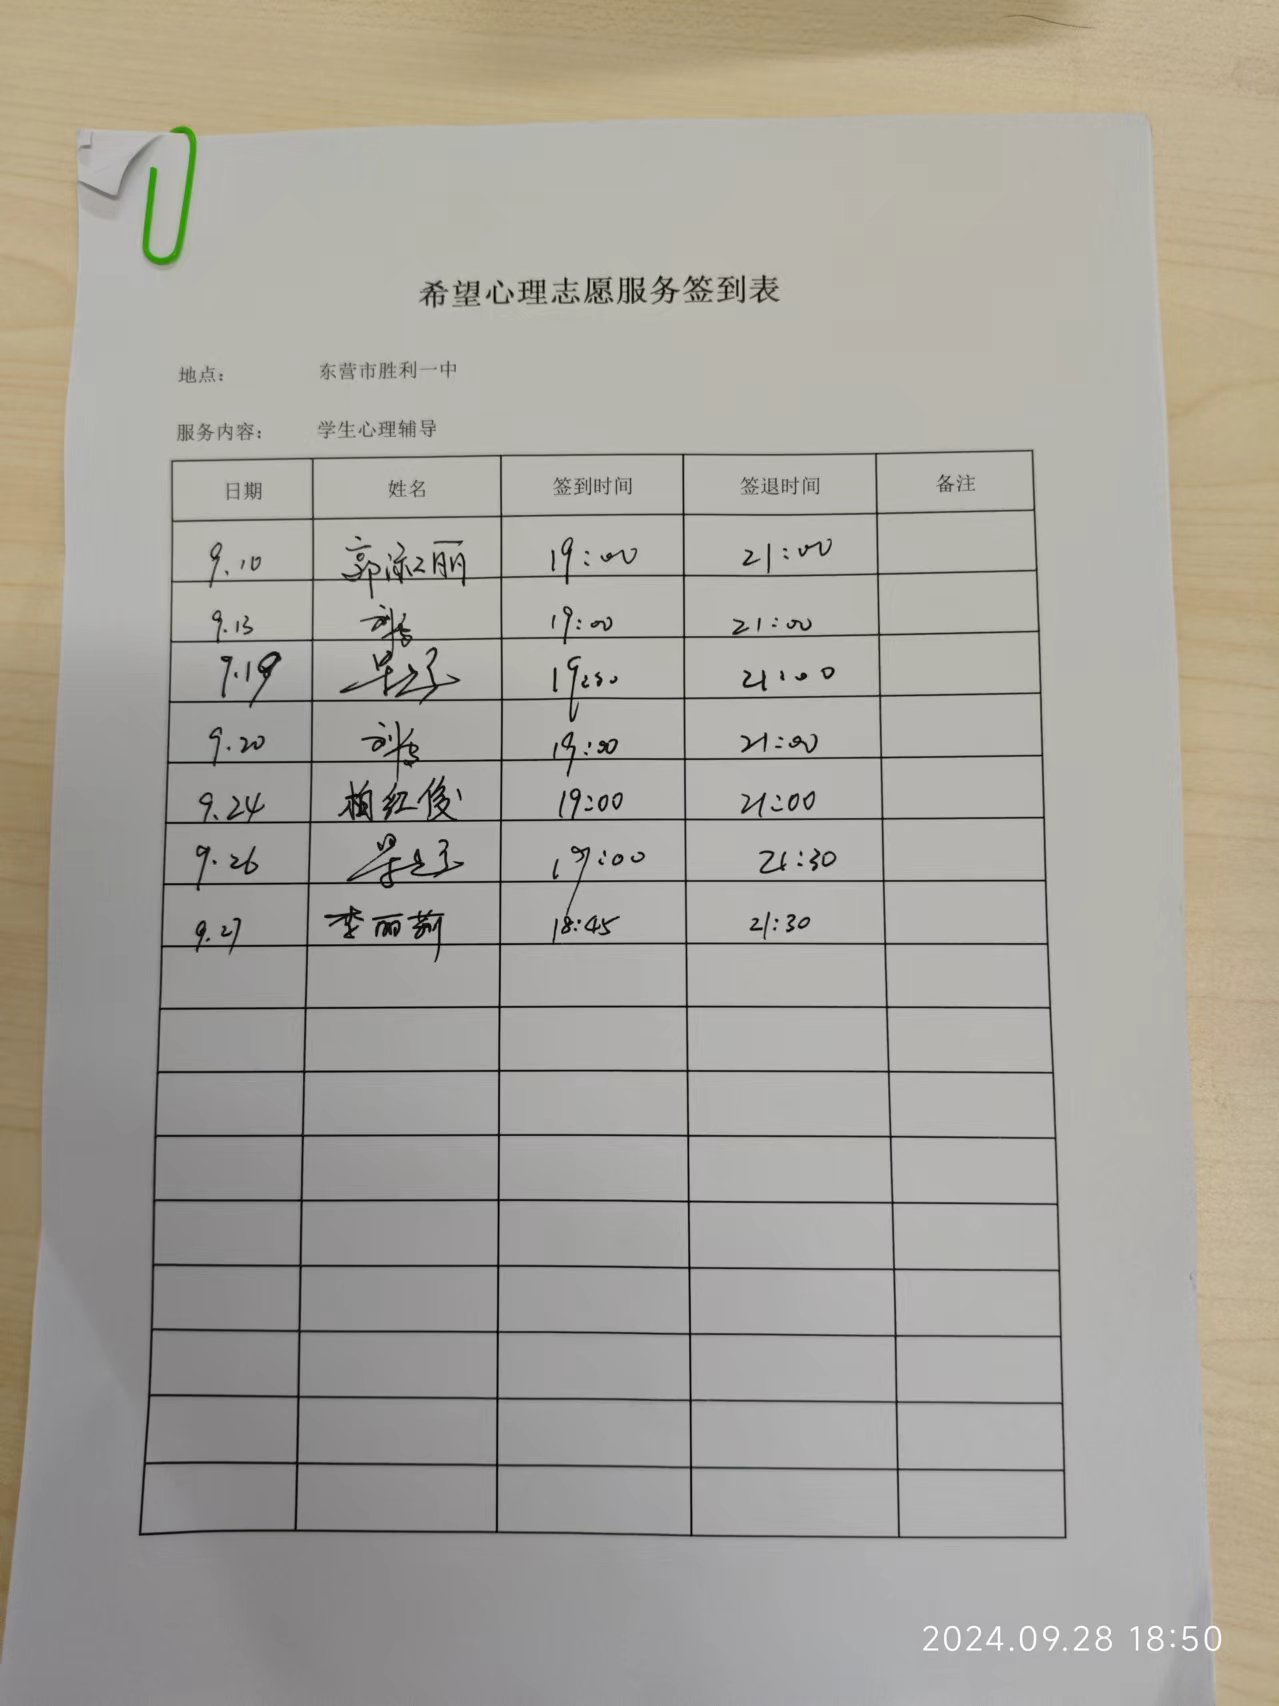 希望心理志愿服务签到表
地点： 东营市胜利一中
服务内容： 学生心理辅导
日期 姓名 签到时间 签退时间 备注
9.10 郭淑丽 19:00 21:00
9.13 19:00 21:00
9.19 19:00 21:00
9.20 19:00 21:00
9.24 柏红俊 19:00 21:00
9.26 19:00 21:30
9.27 李丽莉 18:45 21:30
2024.09.28 18:50